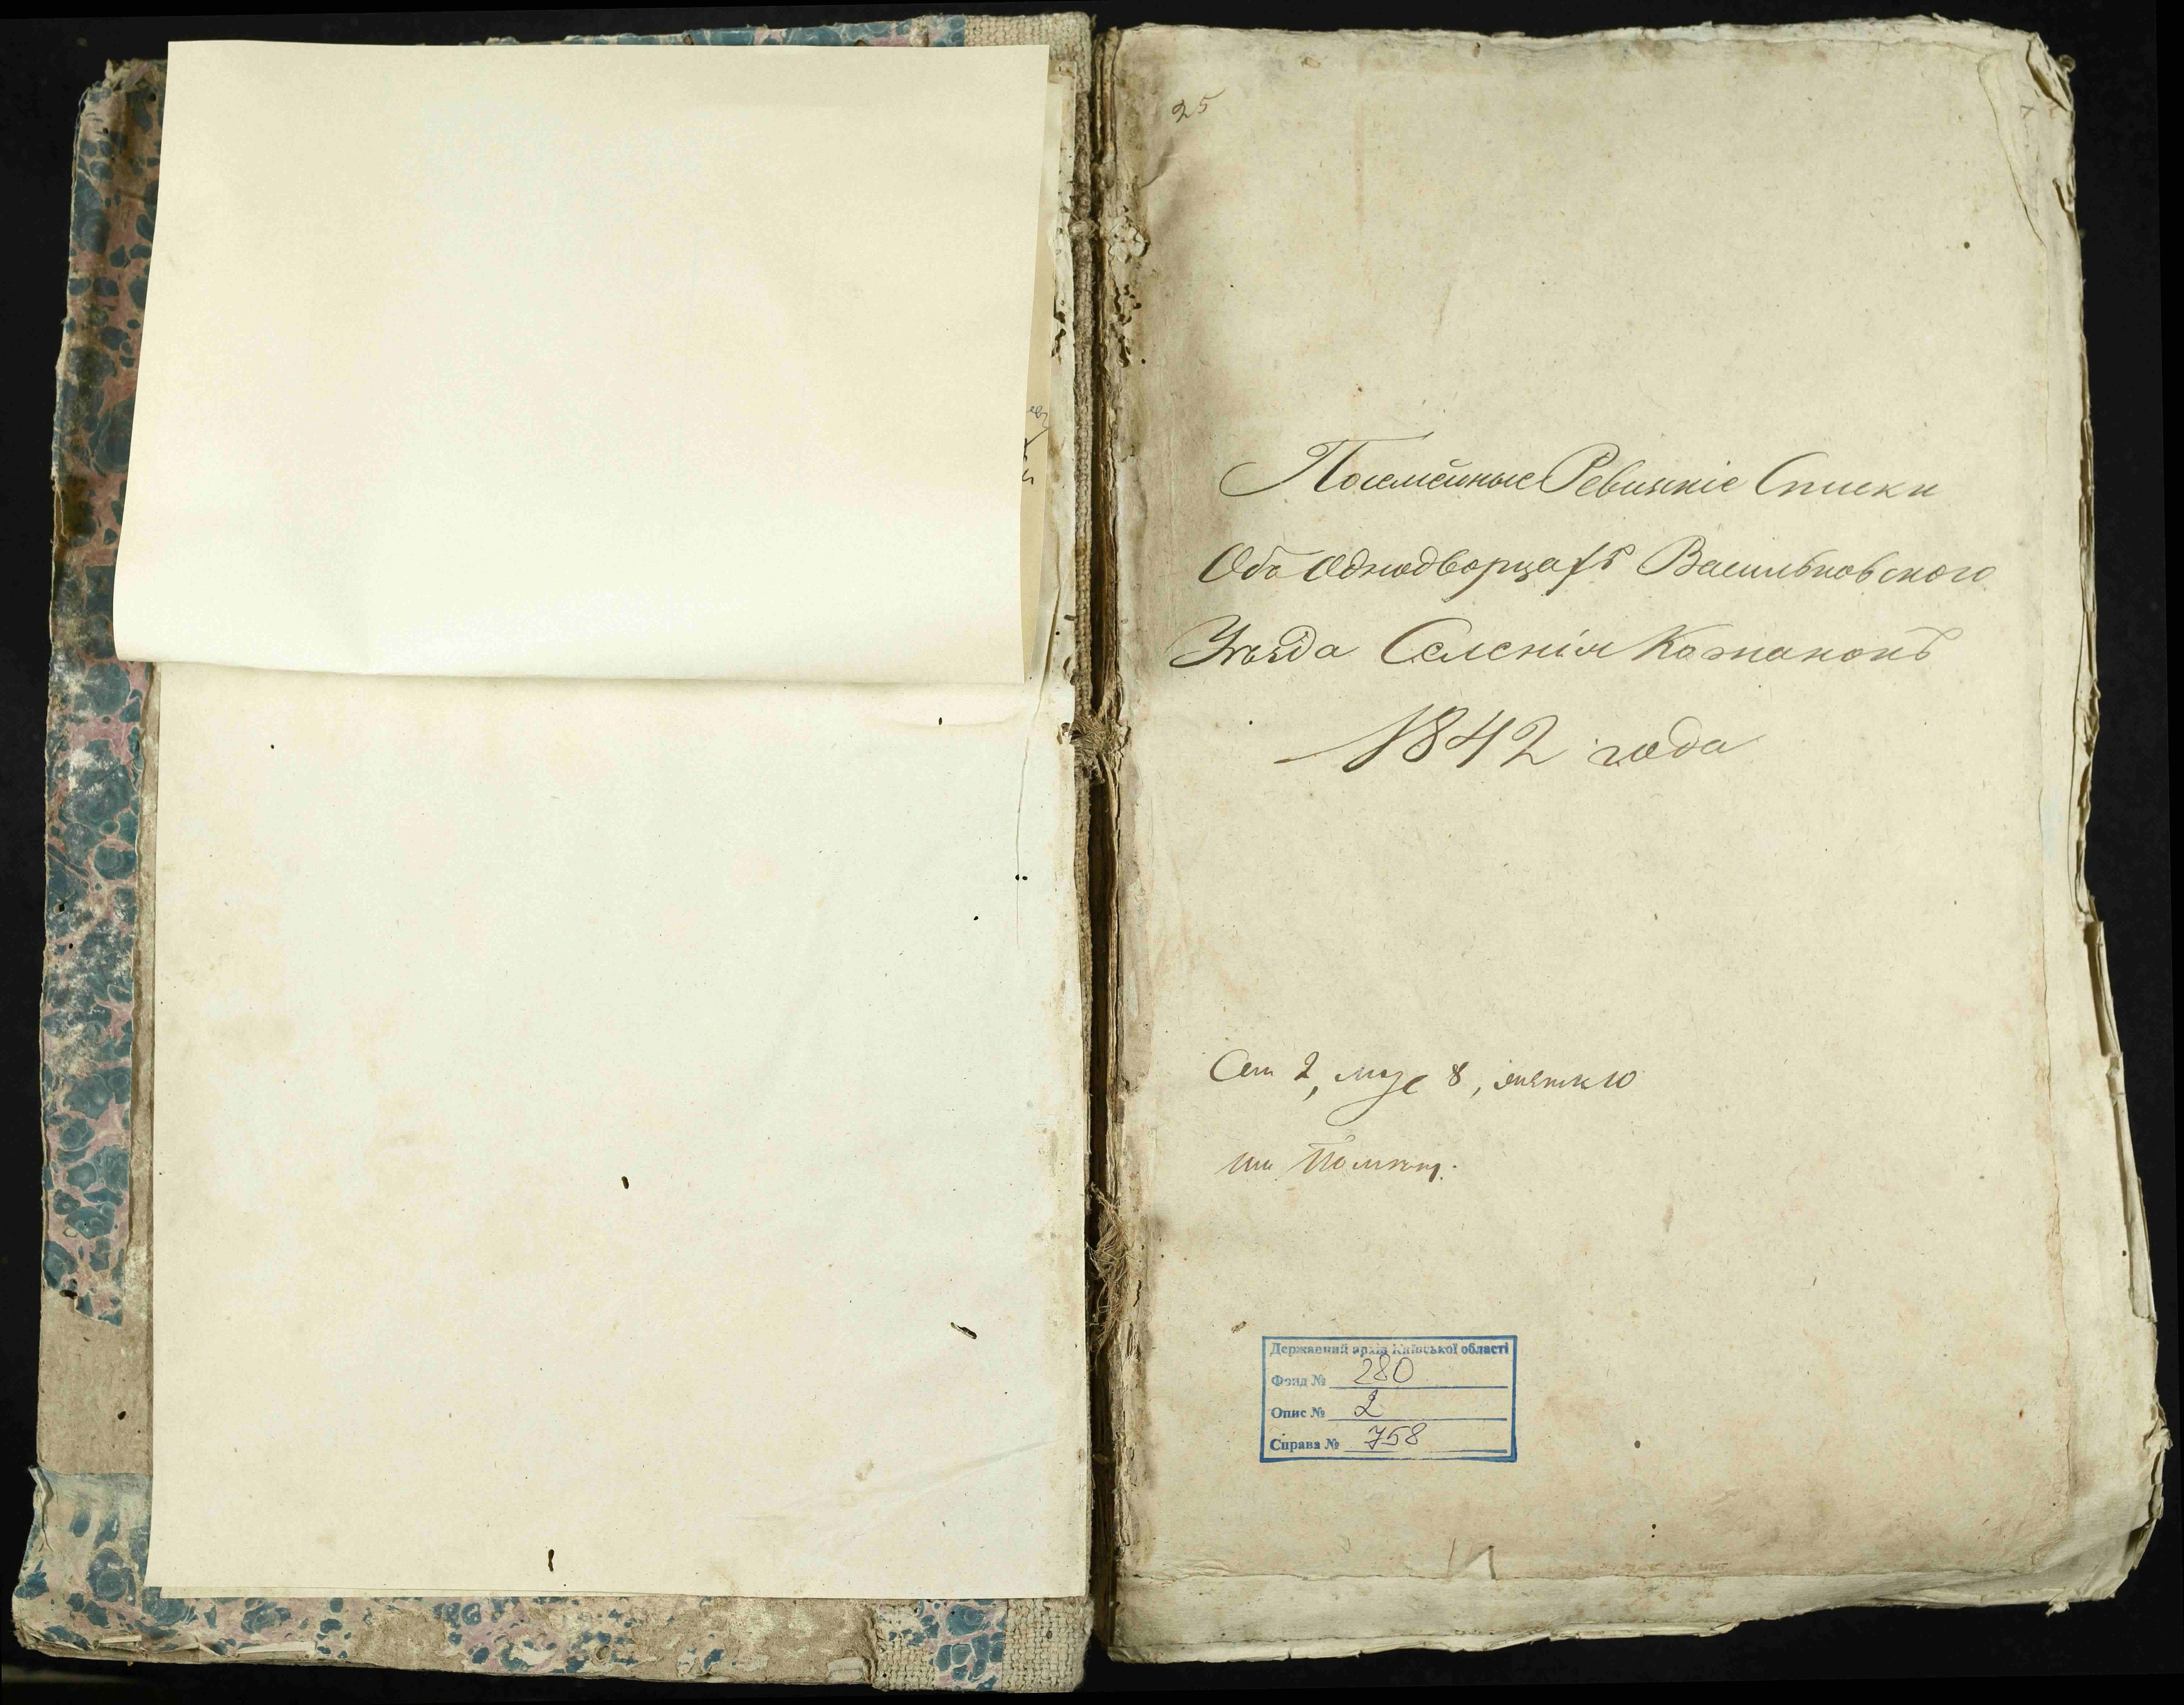 25
Посемейные Ревизкіе Списки
Объ Однодворцахъ Васильковскаго
Уѣзда Селенія Кожанокъ
1842 года
Сем 2, муж 8, женск 10
Державний архів Київської області
Фонд № 280
Опис № 2
Справа № 758